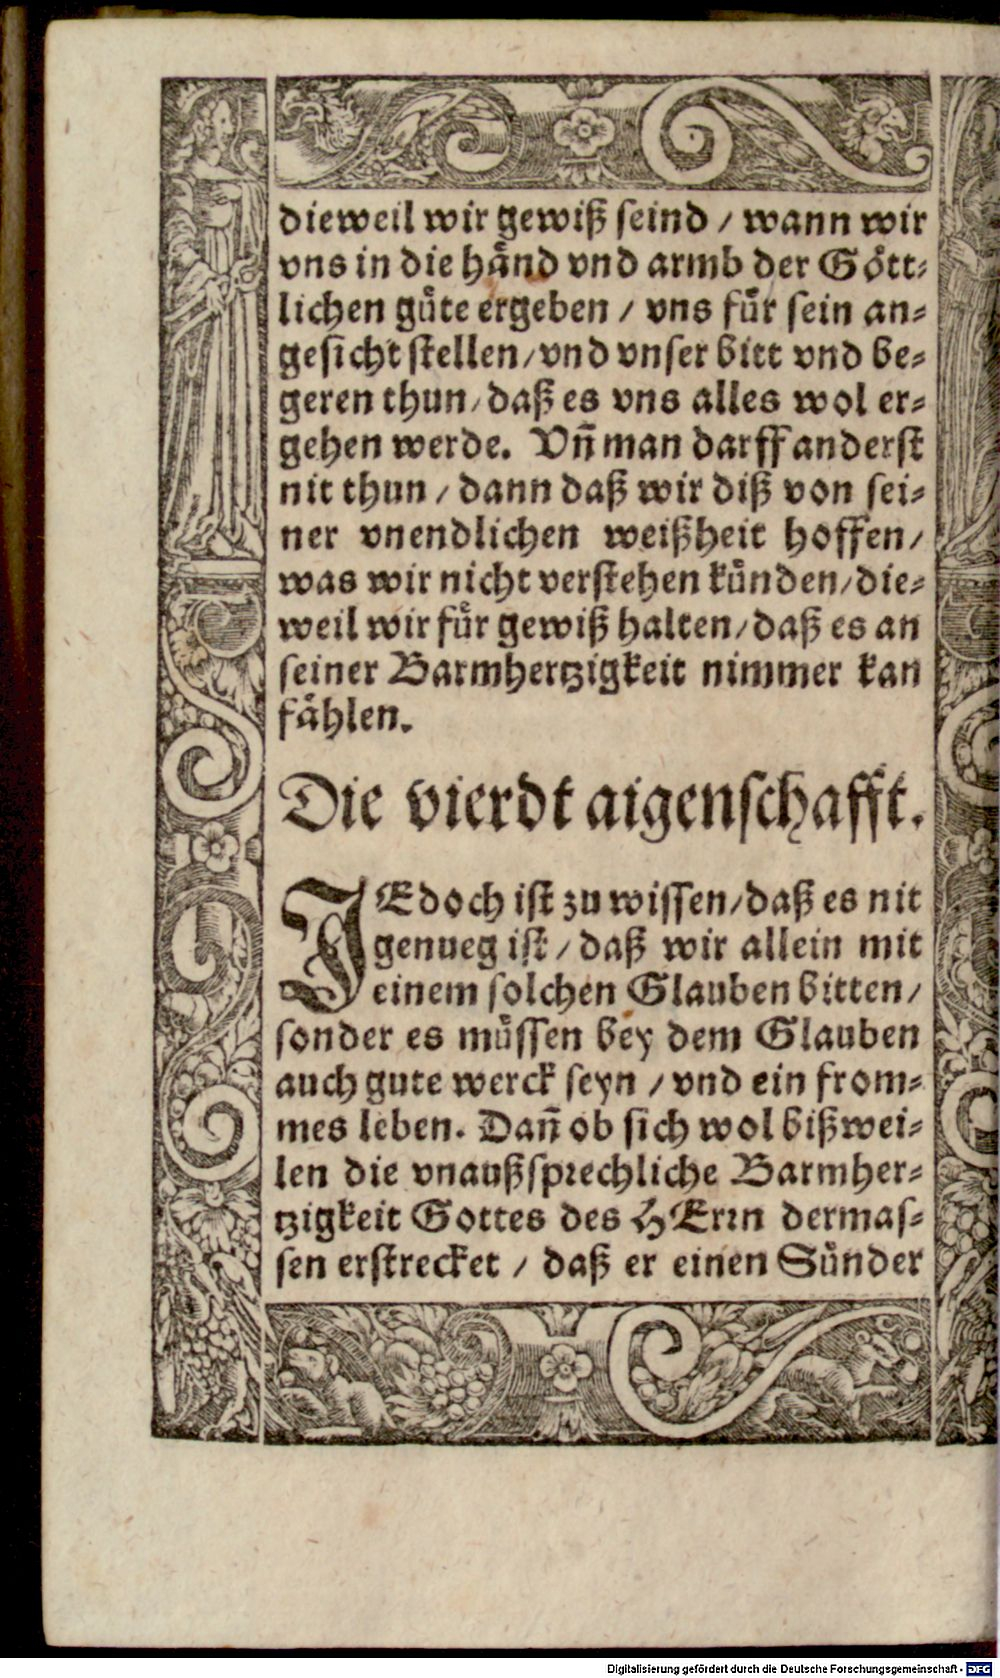 dieweil wir gewiß seind / wann wir
vns in die hånd vnd armb der Gött⸗
lichen gůte ergeben / vns fůr sein an⸗
gesicht stellen / vnd vnser bitt vnd be⸗
geren thun / daß es vns alles wol er⸗
gehen werde. Vn̄ man darff anderst
nit thun / dann daß wir diß von sei⸗
ner vnendlichen weißheit hoffen /
was wir nicht verstehen kůnden / die⸗
weil wir fůr gewiß halten / daß es an
seiner Barmhertzigkeit nimmer kan
fåhlen.
Die vierdt aigenschafft.
JEdoch ist zu wissen / daß es nit
genueg ist / daß wir allein mit
einem solchen Glauben bitten /
sonder es můssen bey dem Glauben
auch gute werck seyn / vnd ein from⸗
mes leben. Dan̄ ob sich wol bißwei⸗
len die vnaußsprechliche Barmher⸗
tzigkeit Gottes des HErrn dermas⸗
sen erstrecket / daß er einen Sůnder
Digitalisierung gefördert durch die Deutsche Forschungsgemeinschaft - DFG